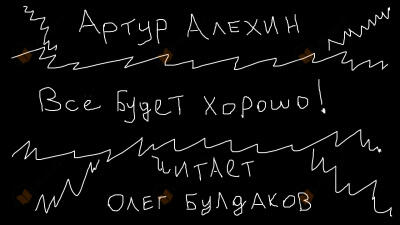 Артур Алехин
Все будет хорошо!
Читает
Олег Булдаков